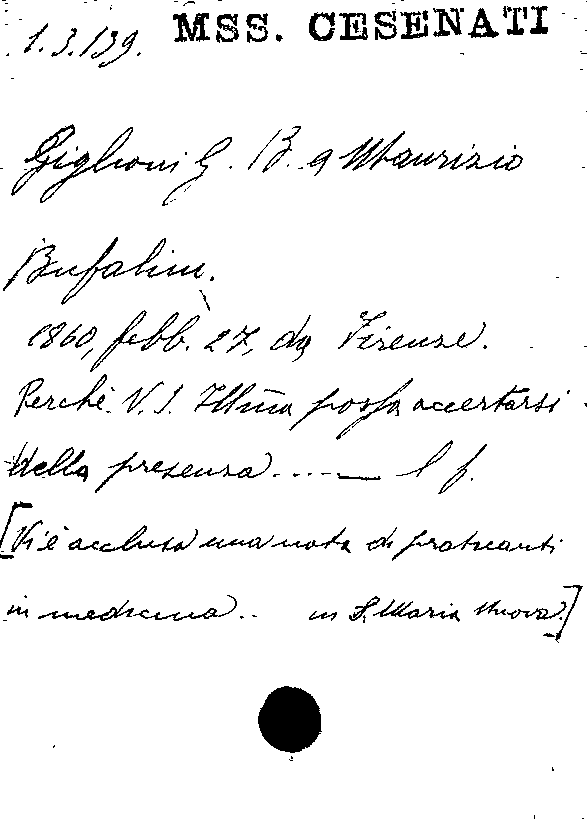 1.3.139. MSS. CESENATI
Giglioni G. B. a Maurizio
Bufalini.
1860, febb. 27, da Firenze.
Perchè V. S. Ill̃ma possa accertarsi
della presenza ..... 1 f.
[Vi è acclusa una nota di praticanti
in medicina .. in S. Maria Nuova.]